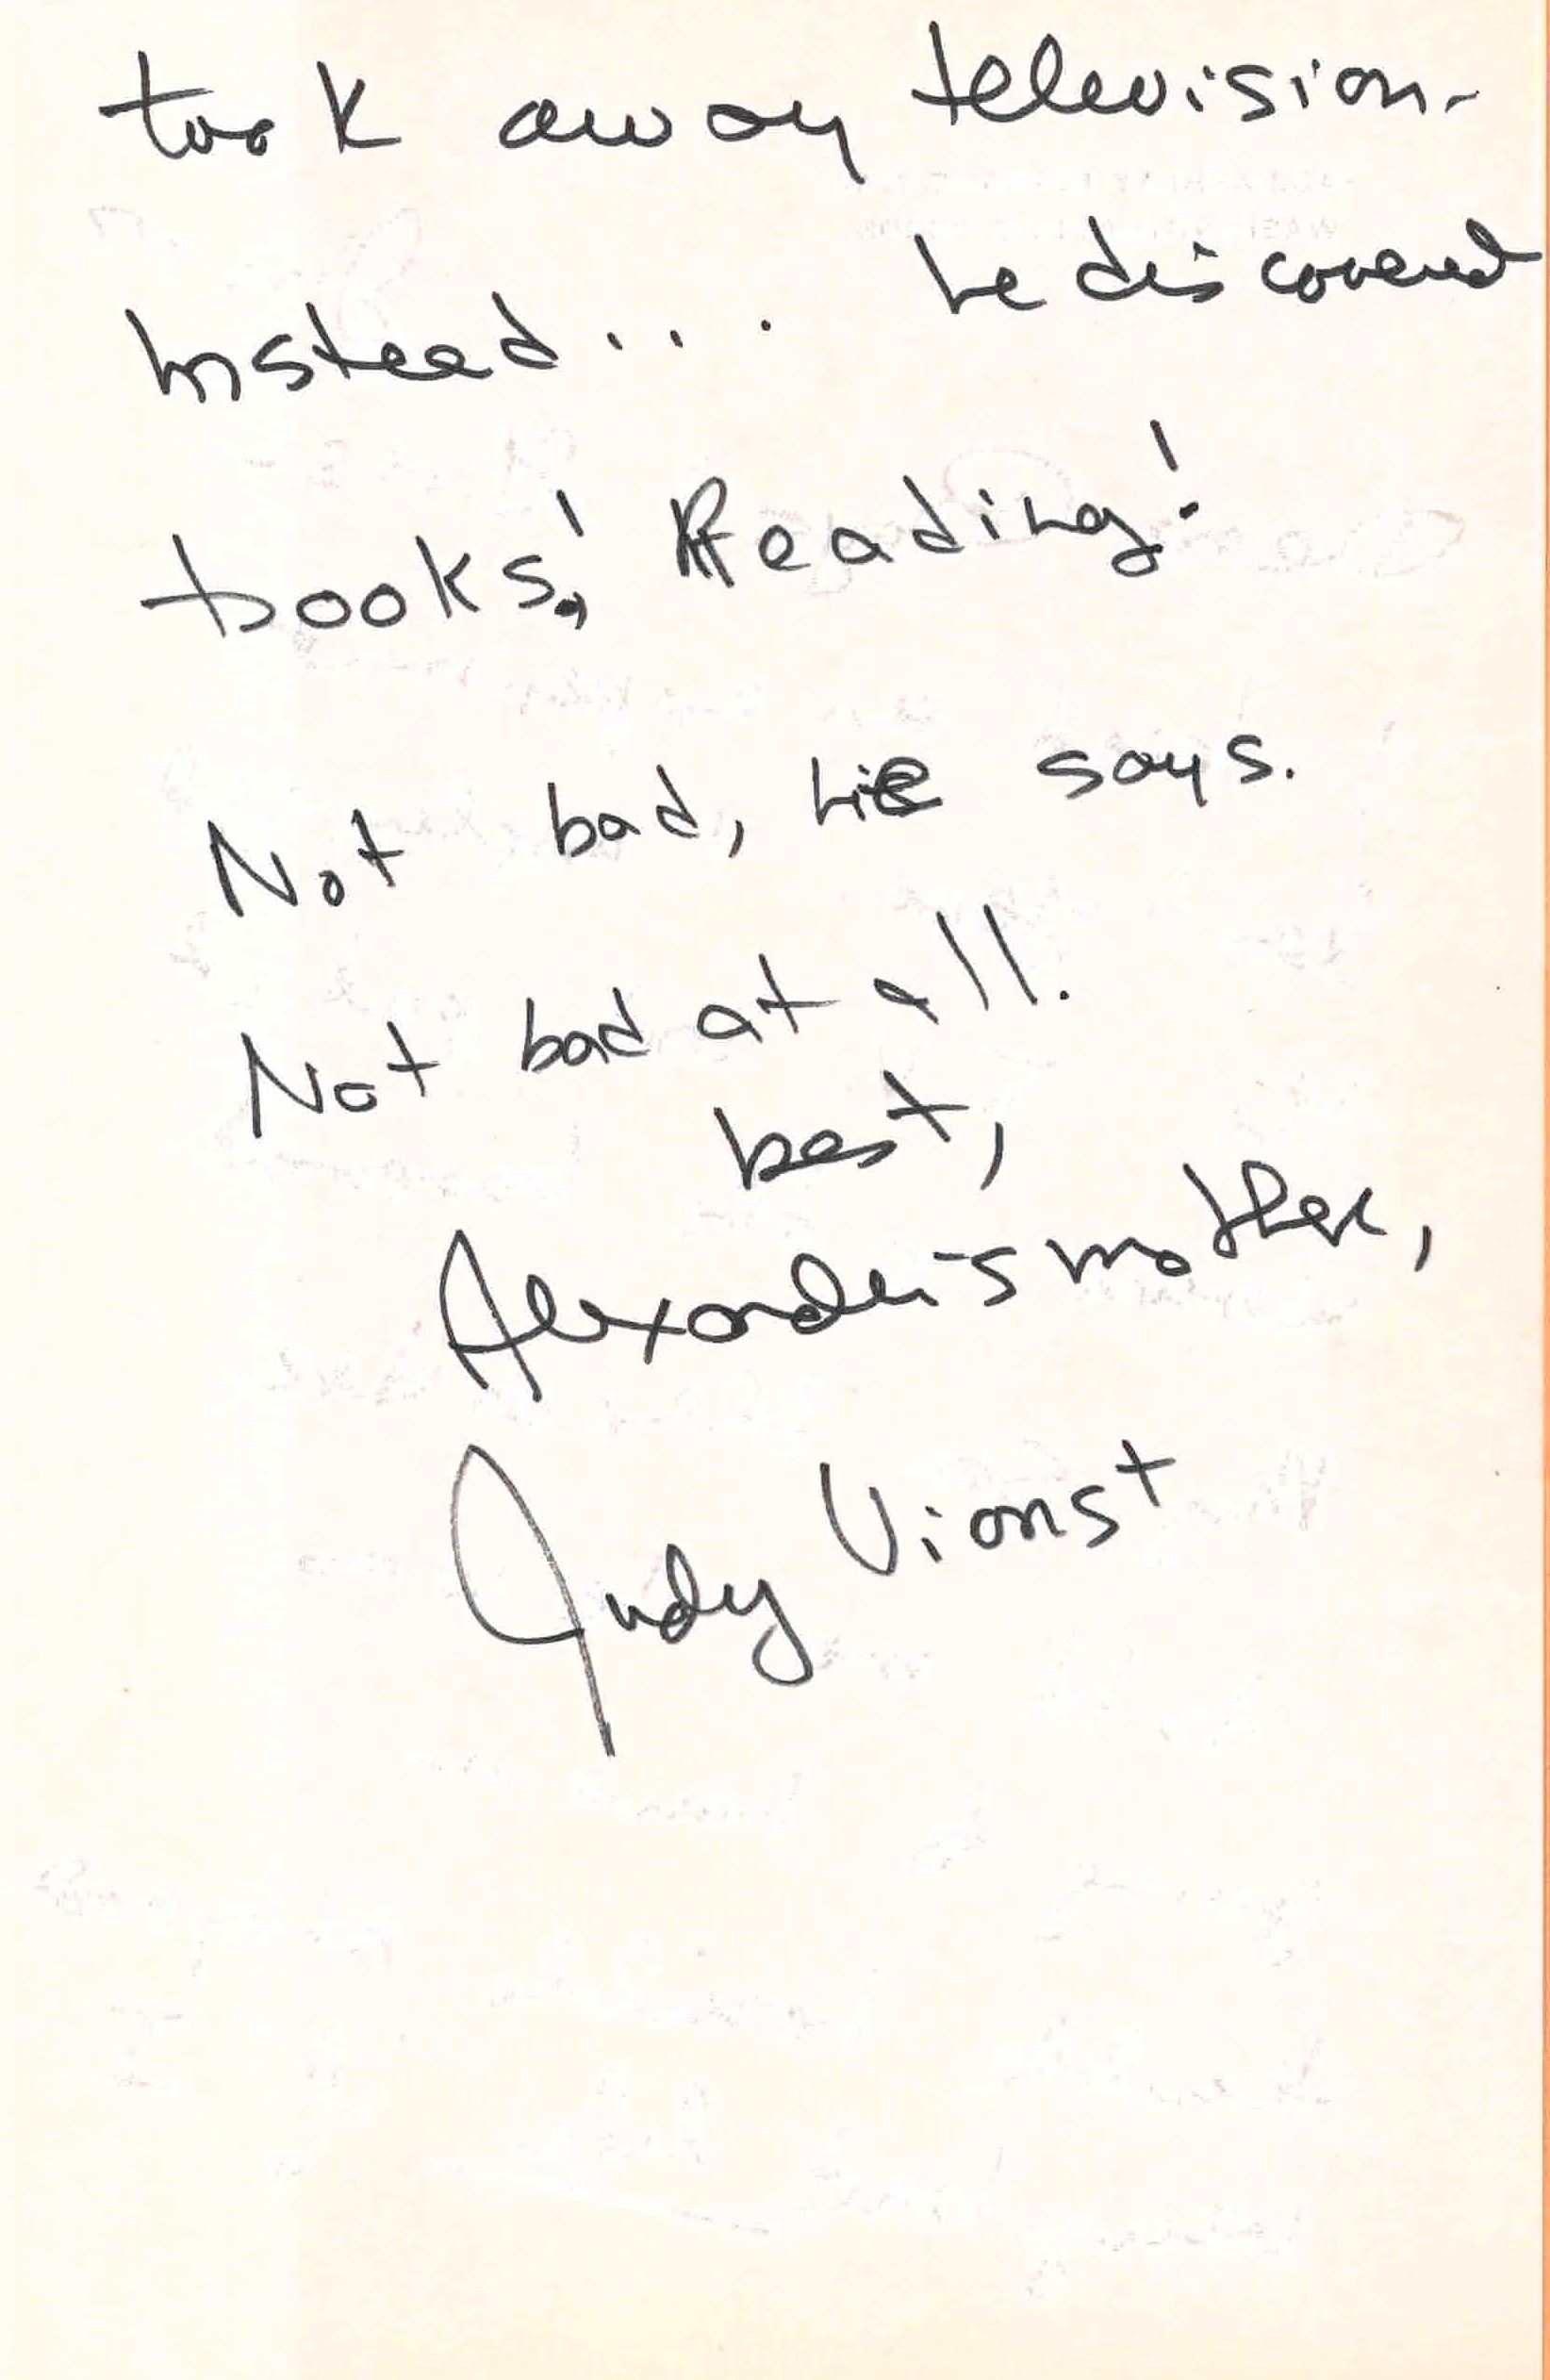 took away television-
instead... he discovered
books! Reading!
Not bad, he says.
Not bad at all.
best,
Alexander's mother,
Judy Viorst